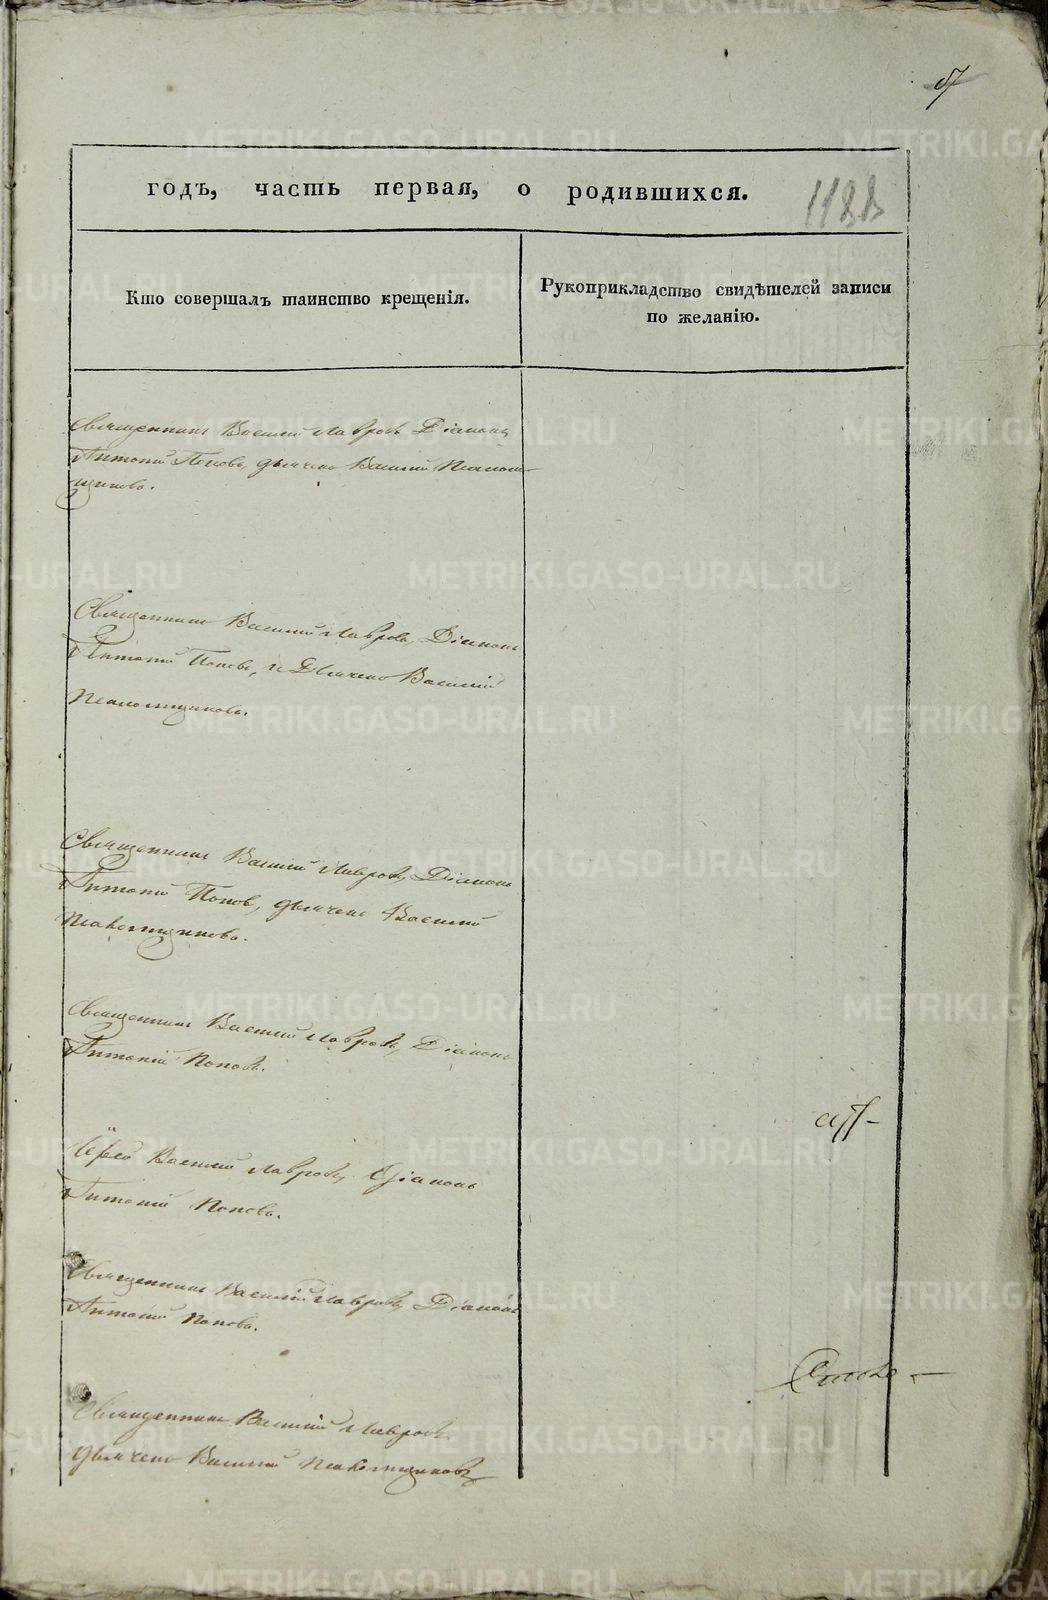 годъ, часть первая, о родившихся.
1188
Кто совершалъ таинство крещенія.
Рукоприкладство свидѣтелей записи
по желанію.
Священникъ Василій Лавровъ, Діаконъ
Антоній Поповъ, дьячекъ Василій
Священникъ Василій Лавровъ, Діаконъ
Антоній Поповъ, и Дьячекъ Василій
Священникъ Василій Лавровъ, Діаконъ
Антоній Попов, дьячекъ Василій
Священникъ Василій Лавровъ, Діаконъ
Антоній Поповъ.
Іерей Василій Лавровъ, Діаконъ
Антоній Поповъ.
Священникъ Василій Лавровъ, Діаконъ
Антоній Поповъ.
Священникъ Василій Лавровъ
дьячекъ Василій
METRIKI.GASO-URAL.RU